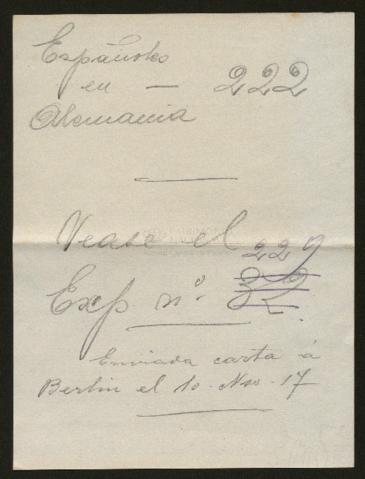 Españoles
en — 222
Alemania
Vease el 229
Exp nº. 39.
Enviada carta á
Berlin el 10-Nov-17